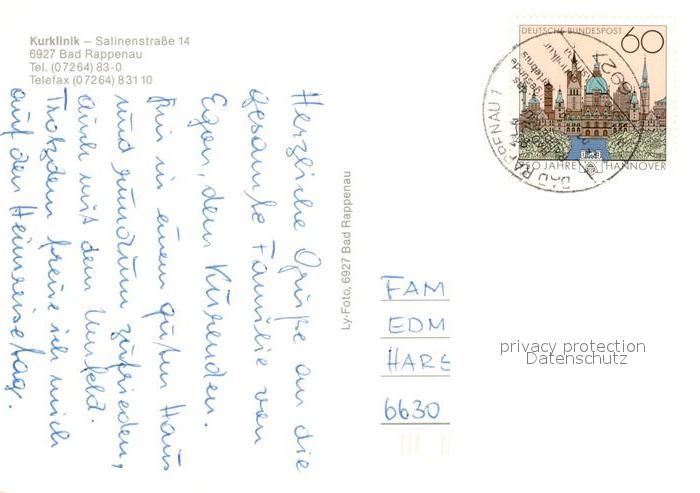 Kurklinik – Salinenstraße 14
6927 Bad Rappenau
Tel. (07264) 83-0
Telefax (07264) 83110
Herzliche Grüße an die
gesamte Familie von
Egon, dem Kurenden.
Bin in einem guten Haus
und rundrum zufrieden,
auch mit dem Umfeld.
Trotzdem freue ich mich
auf den Heimreisetag.
Ly-Foto, 6927 Bad Rappenau
DEUTSCHE BUNDESPOST
60
JAHRE HANNOVER
6927
BAD RAPPENAU 1
FAM
EDM
HARG
6630
privacy protection
Datenschutz